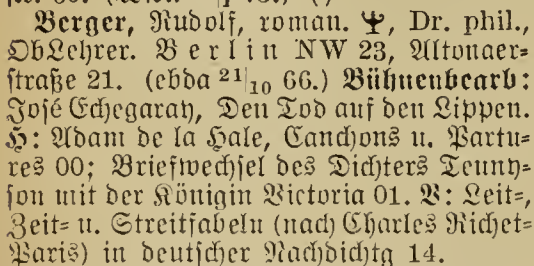 Berger, Rudolf, roman. Ψ, Dr. phil.,
ObLehrer. Berlin NW 23, Altonaer=
straße 21. (ebda 21|10 66.) Bühnenbearb:
José Echegaray, Den Tod auf den Lippen.
H: Adam de la Hale, Canchons u. Partu=
res 00; Briefwechsel des Dichters Tenny=
son mit der Königin Victoria 01. V: Leit=,
Zeit= u. Streitfabeln (nach Charles Richet=
Paris) in deutscher Nachdichtg 14.